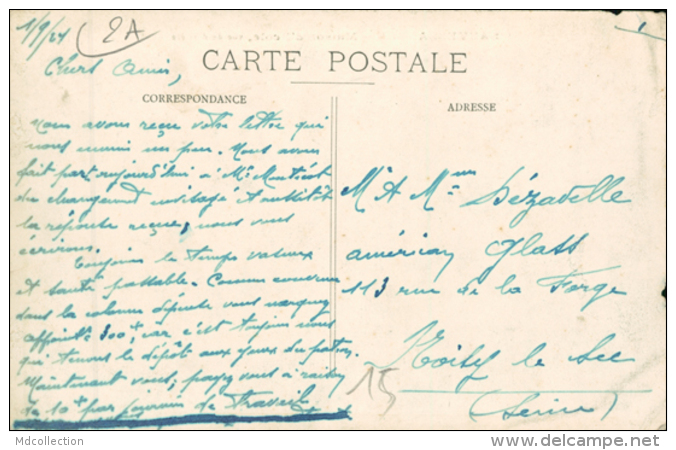 1/9/24 2A
Chers Amis,
CARTE POSTALE
CORRESPONDANCE
ADRESSE
Nous avons reçu votre lettre qui
nous un peu. Nous avons
fait part aujourd'hui à Mr
du changement et aussitôt
la réponse reçue, nous vous
écrirons.
Toujours le temps
et santé passable. Comme
dans la colonne dépense vous
300f, car c'est toujours nous
qui tenons le dépôt aux yeux du patron.
Maintenant vous, payez vous à raison
de 10f par journée de travail.
Mr & Mme Dézavelle
américan Glass
113 rue de la Forge
Noisy le Sec
(Seine)
15
Mdcollection
delcampe.net